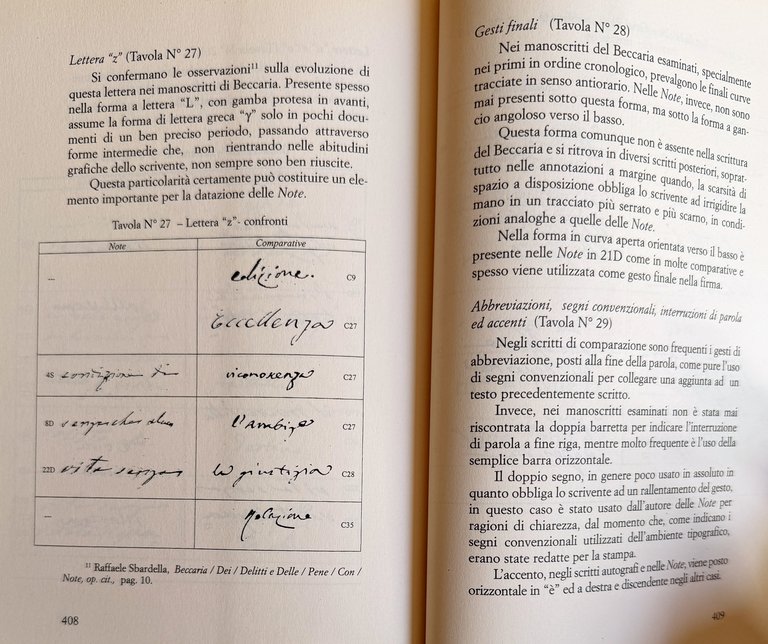 Lettera “z” (Tavola N° 27)
Si confermano le osservazioni¹¹ sulla evoluzione di
questa lettera nei manoscritti di Beccaria. Presente spesso
nella forma a lettera “L”, con gamba protesa in avanti,
assume la forma di lettera greca “γ” solo in pochi docu-
menti di un ben preciso periodo, passando attraverso
forme intermedie che, non rientrando nelle abitudini
grafiche dello scrivente, non sempre sono ben riuscite.
Questa particolarità certamente può costituire un ele-
mento importante per la datazione delle Note.
Tavola N° 27 – Lettera “z”- confronti
Note Comparative
--- edizione. C9
Eccellenza C27
4S condizione di riconoscenza C27
8D l'ambizo C27
22D vita senza la giustizia C28
--- relazione C35
¹¹ Raffaele Sbardella, Beccaria / Dei / Delitti e Delle / Pene / Con /
Note, op. cit., pag. 10.
408
Gesti finali (Tavola N° 28)
Nei manoscritti del Beccaria esaminati, specialmente
nei primi in ordine cronologico, prevalgono le finali curve
tracciate in senso antiorario. Nelle Note, invece, non sono
mai presenti sotto questa forma, ma sotto la forma a gan-
cio angoloso verso il basso.
Questa forma comunque non è assente nella scrittura
del Beccaria e si ritrova in diversi scritti posteriori, soprat-
tutto nelle annotazioni a margine quando, la scarsità di
spazio a disposizione obbliga lo scrivente ad irrigidire la
mano in un tracciato più serrato e più scarno, in condi-
zioni analoghe a quelle delle Note.
Nella forma in curva aperta orientata verso il basso è
presente nelle Note in 21D come in molte comparative e
spesso viene utilizzata come gesto finale nella firma.
Abbreviazioni, segni convenzionali, interruzioni di parola
ed accenti (Tavola N° 29)
Negli scritti di comparazione sono frequenti i gesti di
abbreviazione, posti alla fine della parola, come pure l'uso
di segni convenzionali per collegare una aggiunta ad un
testo precedentemente scritto.
Invece, nei manoscritti esaminati non è stata mai
riscontrata la doppia barretta per indicare l'interruzione
di parola a fine riga, mentre molto frequente è l'uso della
semplice barra orizzontale.
Il doppio segno, in genere poco usato in assoluto in
quanto obbliga lo scrivente ad un rallentamento del gesto,
in questo caso è stato usato dall'autore delle Note per
ragioni di chiarezza, dal momento che, come indicano i
segni convenzionali utilizzati dell'ambiente tipografico,
erano state redatte per la stampa.
L'accento, negli scritti autografi e nelle Note, viene posto
orizzontale in “è” ed a destra e discendente negli altri casi.
409